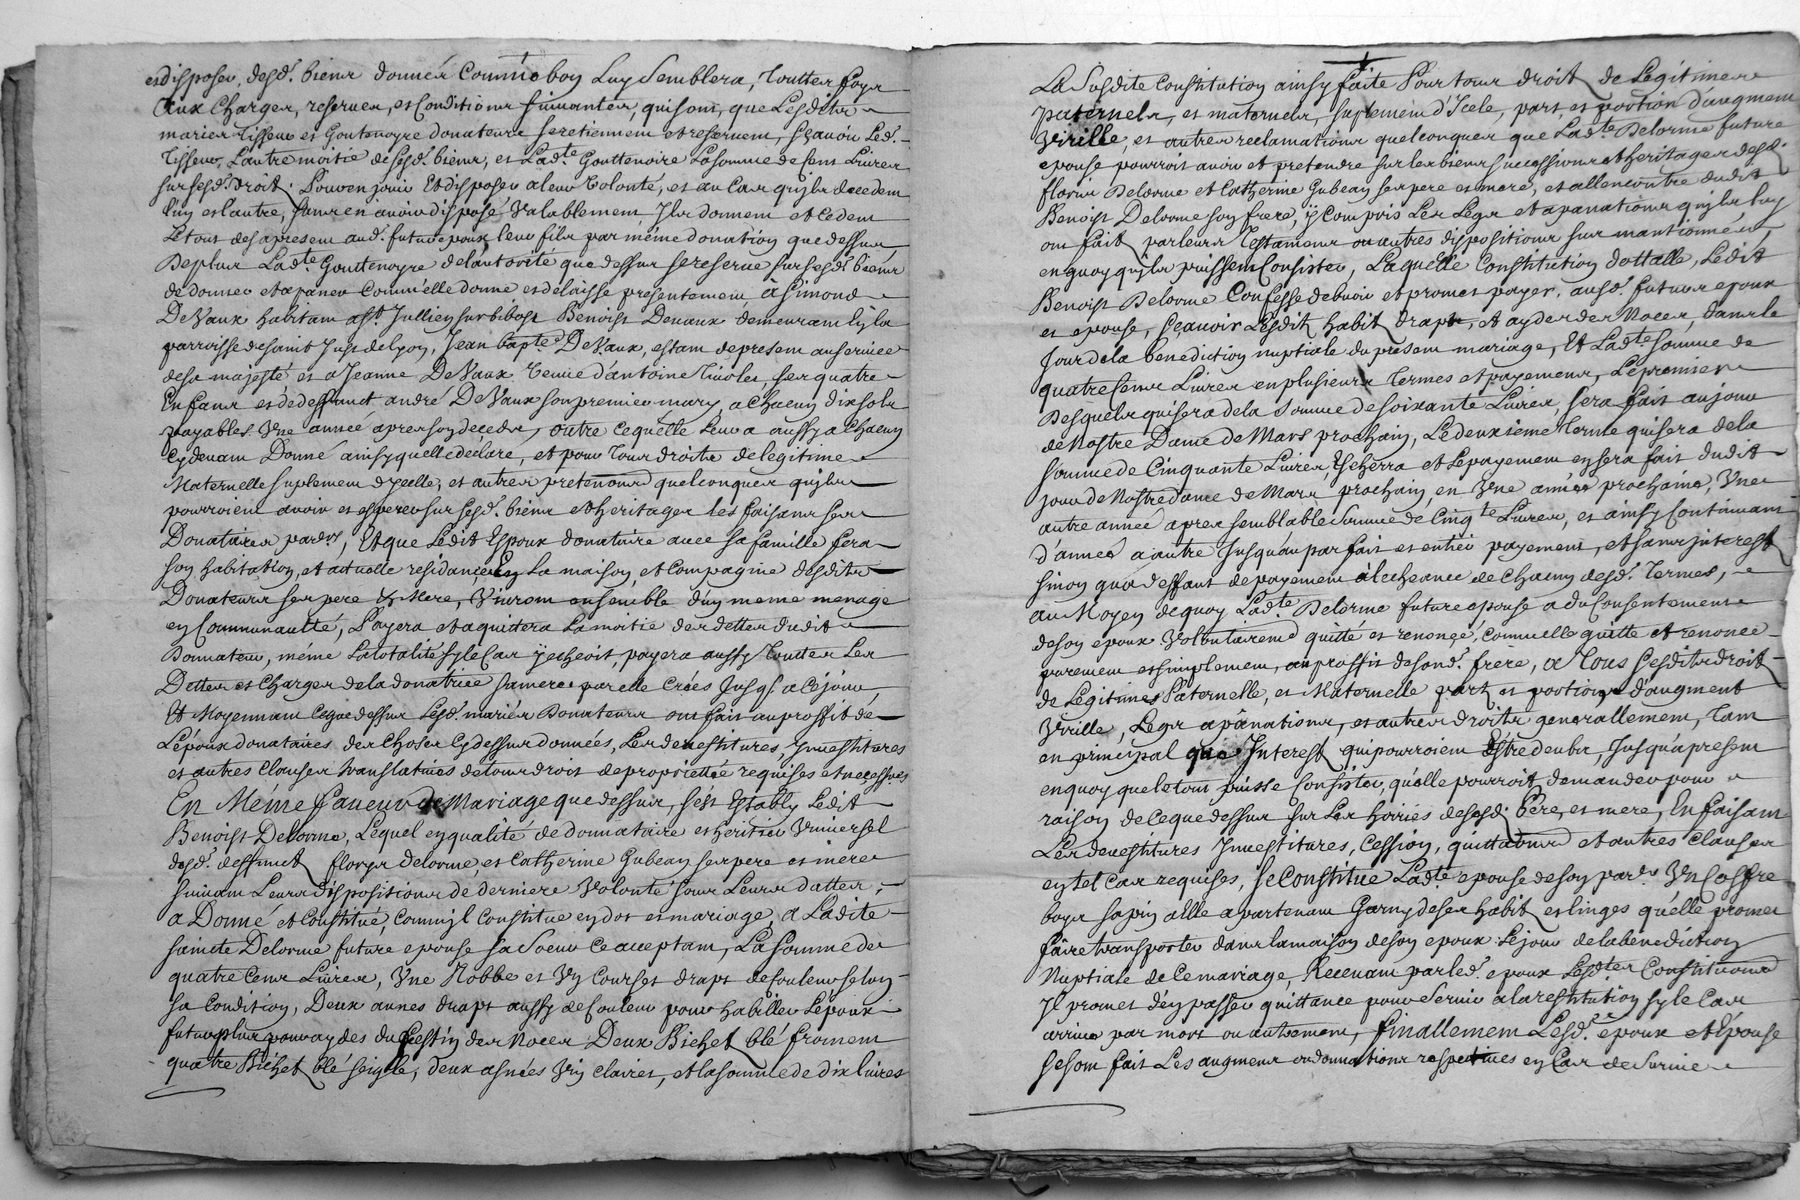 et disposer desd. biens donnés comme bon luy semblera, touttes foys
aux charges, reserves, et conditions suivantes, qui sont, que lesdits
mariés Tisseur et Goutenoyre donateurs se retiennent et reservent, sçavoir led.
Tisseur, l'autre moitié de sesd. biens, et lad.te Gouttenoire la somme de cent livres
sur sesd. droits pour en jouir et disposer a leur volonté, et au cas quils decedent
l'un et l'autre, sans en avoir disposé valablement, ils donnent et cedent
le tout des a present aud. futur epoux leur fils par même donation que dessus
De plus lad.te Gouttenoyre de l'autorité que dessus se reserve sur sesd. biens
de donner et apaner comm'elle donne et delaisse presentement, à Simond
DeVaux habitant a St. Jullien sur bibost Benoist Devaux demeurant en la
parroisse de saint Just de Lyon, Jean bapt.e DeVaux, estant de present au service
de sa majesté et a Jeanne DeVaux veuve d'antoine, ses quatre
Enfans et de deffunct andré DeVaux son premier mary, a chacun dix sols
payables une année apres son decedz, outre ce qu'elle leur a aussy a chacun
cy devant Donné ainsy quelle declare, et pour tous droits de legitime
Maternelle suplement d'ycelle, et autres pretentions quelconques quils
pourroient avoir et esperer sur sesd. biens et heritages les faisans ses
Donataires par.rs, Et que ledit Espoux donataire avec sa famille fera
son habitation, et actuelle residance En la maison, et compagnie desdits
Donateurs ses pere & Mere, vivront ensemble d'un meme menage
en communaulté, payera et aquittera la moitie des dettes dudit
Donnateur, méme la totalité sy le cas y echeoit, payera aussy touttes les
Dettes et charges de la donatrice sa mere par elle crées jusqs. a ce jour,
Et moyennant ce que dessus lesd. mariés Donateurs ont fait au proffit de
l'époux donataires des choses cy dessus données, les devestitures, Jnvestitures
et autres clauses translatives de tous droit de proprietté requises et necess.res
En Méme faveur de Mariage que dessus, s'est Estably ledit
Benoist Delorme, lequel en qualité de donnataire et heritier universel
desd. deffunct florys delorme, et Catherine Gubean ses pere et mere
suivant leurs dispositions de derniere volonté sous leurs dattes,
a Donné et constitué, comm'il constitue en dot et mariage, a ladite
saincte Delorme future epouse sa soeur ce acceptant, la somme de
quatre cens livres, une Robbe et un courset draps de couleur selon
sa condition, Deux aunes draps aussy de couleur pour habiller l'epoux
futur plus pour aydes du festin des noces Deux Bichet blé froment
quatre Bichet blé seigle, deux asnées vin clairet, et la somme de dix livres
La susdite constitution ainsy faite pour tous droit de legitimes
paternels, et maternels, suplement d'icele, part, et portion d'augment
virille, et autres reclamations quelconques que lad.te Delorme future
epouse pourroit avoir et pretendre sur les biens successions et heritages desd.
floris Delorme et Catherine Gubean ses pere et mere, et allencontre dudit
Benoist Delorme son frere, y compris les legs et apanations quils luy
ont fait par leurs testamens ou autres dispositions sur mantionnées,
en quoy quils puissent consister, laquelle constitution dottalle, ledit
Benoist Delorme confesse debvoir et promet payer, ausd. futurs epoux
et epouse, sçavoir lesdits habit draps, et aydes des noces, dans le
jour de la benediction nuptiale du present mariage, et lad.te somme de
quatre cens livres en plusieurs termes et payemens, le premier
Desquels qui sera de la somme de soixante livres, sera fait au jour
de Nostre Dame de Mars prochain, le deuxieme terme qui sera de la
somme de cinquante livres, escherra et le payement en sera fait dudit
jour de Nostre dame de Mars prochain, en une année prochaine, une
autre année apres semblable somme de cinq.te livres, et ainsy continuant
d'année a autre jusqu'au parfait et entier payement, et sans jnterest
sinon qu'a deffaut de payement à l'echeance de chacun desd. termes,
au moyen de quoy lad.te Delorme future epouse a du consentement
de son epoux volontairem.t quitté et renoncé, comm'elle quitte et renonce
purement et simplement, au proffit de sond. frère, a tous sesdits droit
de legitimes Paternelle, et Maternelle part et portions d'augment
virille, legs apanations, et autres droits generallement, tant
en principal que Interest qui pourroient Estre deubs, jusqu'a present
en quoy que le tout puisse consister, qu'elle pourroit demander pour
raison de ce que dessus sur les hoiries desesd. Pere, et mere, En faisant
Les devestitures Jnvestitures, cession, quittances et autres clauses
en tel cas requises, se constitue lad.te epouse de son par.er un coffre
boys sapin a elle apartenant Garny de ses habit et linges qu'elle promet
faire transporter dans la maison de son epoux le jour de la benediction
Nuptiale de ce mariage, Recevant par led. epoux lesd.tes constitutions
Jl promet d'en passer quittance pour servir a la restitution sy le cas
arrive par mort ou autrement, finallement lesd. époux et Epouse
se sont fait les augmens ou donnations respectives en cas de survie